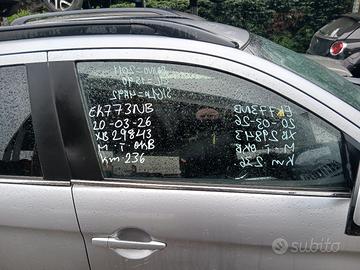 EK773NB
20-03-26
XB29843
M.T. OKB
Km.236
EK773NB
20-03-26
XB29843
M.T. OKB
Km 236
subito